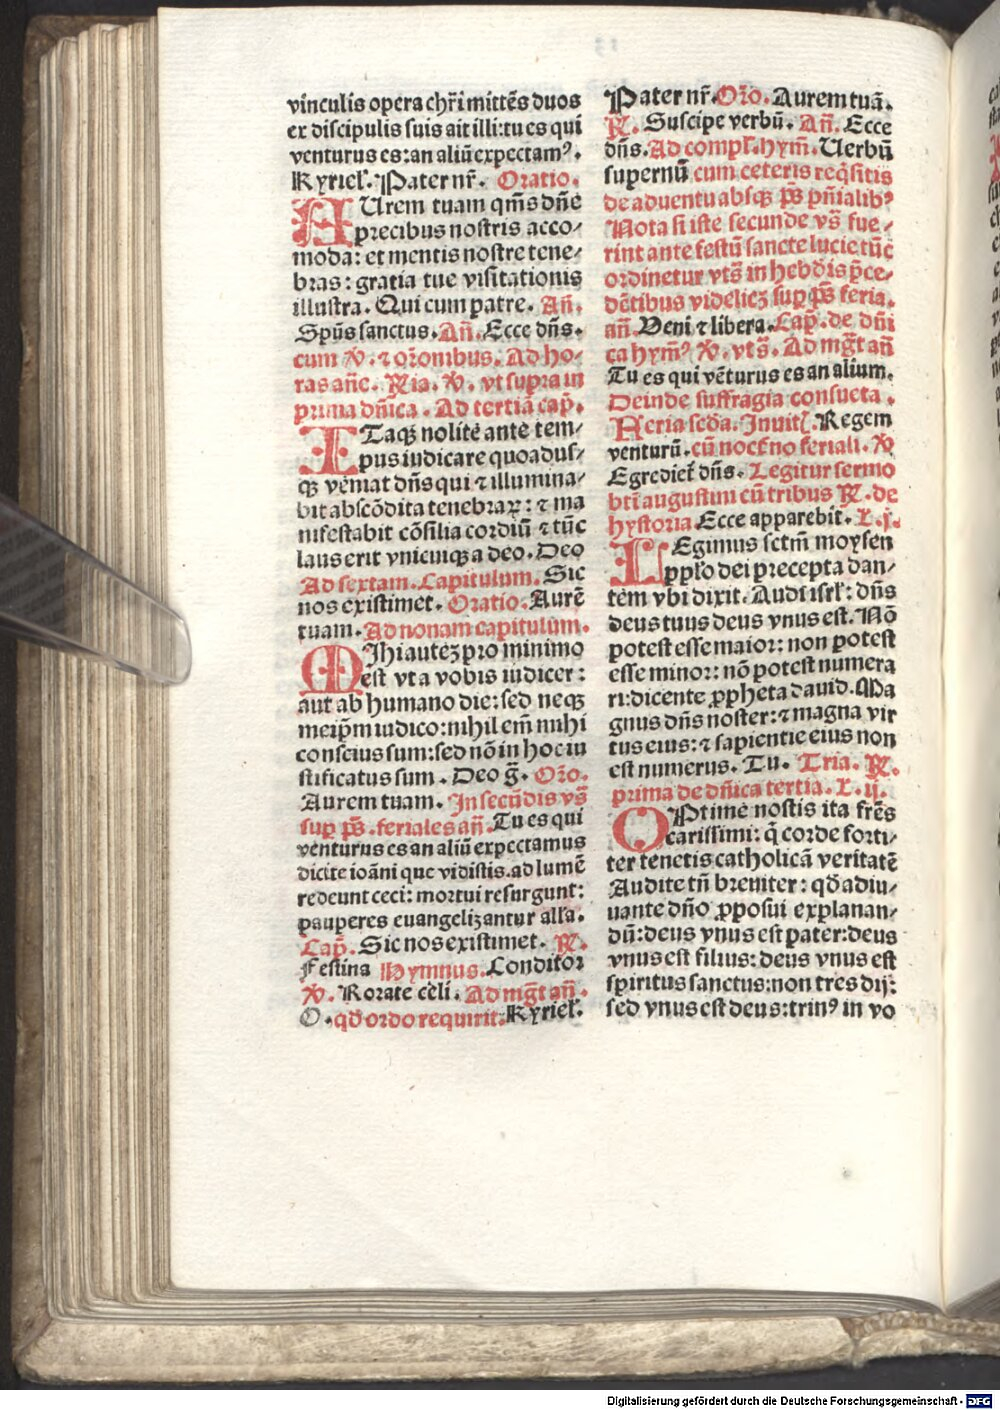 vinculis opera chr̄i mittēs duos
ex discipulis suis ait illi: tu es qui
venturus es: an aliū expectamꝰ.
Kyriel̄. Pater nr̄. Oratio.
AUrem tuam qm̄s dn̄e
precibus nostris acco⸗
moda: et mentis nostre tene⸗
bras: gratia tue visitationis
illustra. Qui cum patre. An̄.
Spūs sanctus. An̄. Ecce dn̄s.
cum ℣. ⁊ or̄onibus. Ad ho⸗
ras an̄e. ℞ia. ℣. vt supra in
prima dn̄ica. Ad tertiā cap̄.
ITaqꝫ nolite ante tem⸗
pus iudicare quoadus⸗
qꝫ veniat dn̄s qui ⁊ illumina⸗
bit abscōdita tenebraꝝ: ⁊ ma
nifestabit cōsilia cordiū ⁊ tūc
laus erit vnicuiqꝫ a deo. Deo
Ad sextam. Capitulum. Sic
nos existimet. Oratio. Aurē
tuam. Ad nonam capitulum.
MIhi autēꝫ pro minimo
est vt a vobis iudicer:
aut ab humano die: sed neqꝫ
meip̄m iudico: nihil em̄ mihi
conscius sum: sed nō in hoc iu
stificatus sum. Deo ḡ. Or̄o.
Aurem tuam. In secūdis vs̄
sup̄ ps̄. feriales an̄. Tu es qui
venturus es an aliū expectamus
dicite ioāni que vidistis. ad lumē
redeunt ceci: mortui resurgunt:
pauperes euangelizantur all̄a.
Cap̄. Sic nos existimet. ℞.
Festina Hymnus. Conditor
℣. Rorate celi. Ad mḡt an̄.
O. qd̄ ordo requirit. Kyriel̄.
Pater nr̄. Or̄o. Aurem tuā.
℞. Suscipe verbū. An̄. Ecce
dn̄s. Ad compl̄. hym̄. Uerbū
supernū cum ceteris reqͥsitis
de aduentu absqꝫ ps̄ pn̄ialibꝰ
Nota si iste secunde vs̄ fue⸗
rint ante festū sancte lucie tūc
ordinetur vts̄ in hebd̄is p̄ce⸗
dētibus videlicꝫ sup̄ ps̄ feria.
an̄. Veni ⁊ libera. Cap̄. de dn̄i
ca hymꝰ ℣. vts̄. Ad mḡt an̄
Tu es qui vēturus es an alium.
Deinde suffragia consueta.
Feria sed̄a. Inuit̄. Regem
venturū. cū noct̄no feriali. ℣
Egrediet̄ dn̄s. Legitur sermo
bt̄i augustini cū tribus ℞. de
hystoria. Ecce apparebit. L. j.
LEgimus sctm̄ moysen
pp̄lo dei precepta dan⸗
tem vbi dixit. Audi isrl̄: dn̄s
deus tuus deus vnus est. Nō
potest esse maior: non potest
esse minor: nō potest numera
ri: dicente ꝓpheta dauid. Ma
gnus dn̄s noster: ⁊ magna vir
tus eius: ⁊ sapientie eius non
est numerus. Tu. Tria. ℞.
prima de dn̄ica tertia. L. ij.
OPtime nostis ita frēs
carissimi: q̄ corde forti⸗
ter tenetis catholicā veritatē
Audite tn̄ breuiter: qd̄ adiu⸗
uante dn̄o ꝓposui explanan⸗
dū: deus vnus est pater: deus
vnus est filius: deus vnus est
spiritus sanctus: non tres dij:
sed vnus est deus: trinꝰ in vo
Digitalisierung gefördert durch die Deutsche Forschungsgemeinschaft - DFG